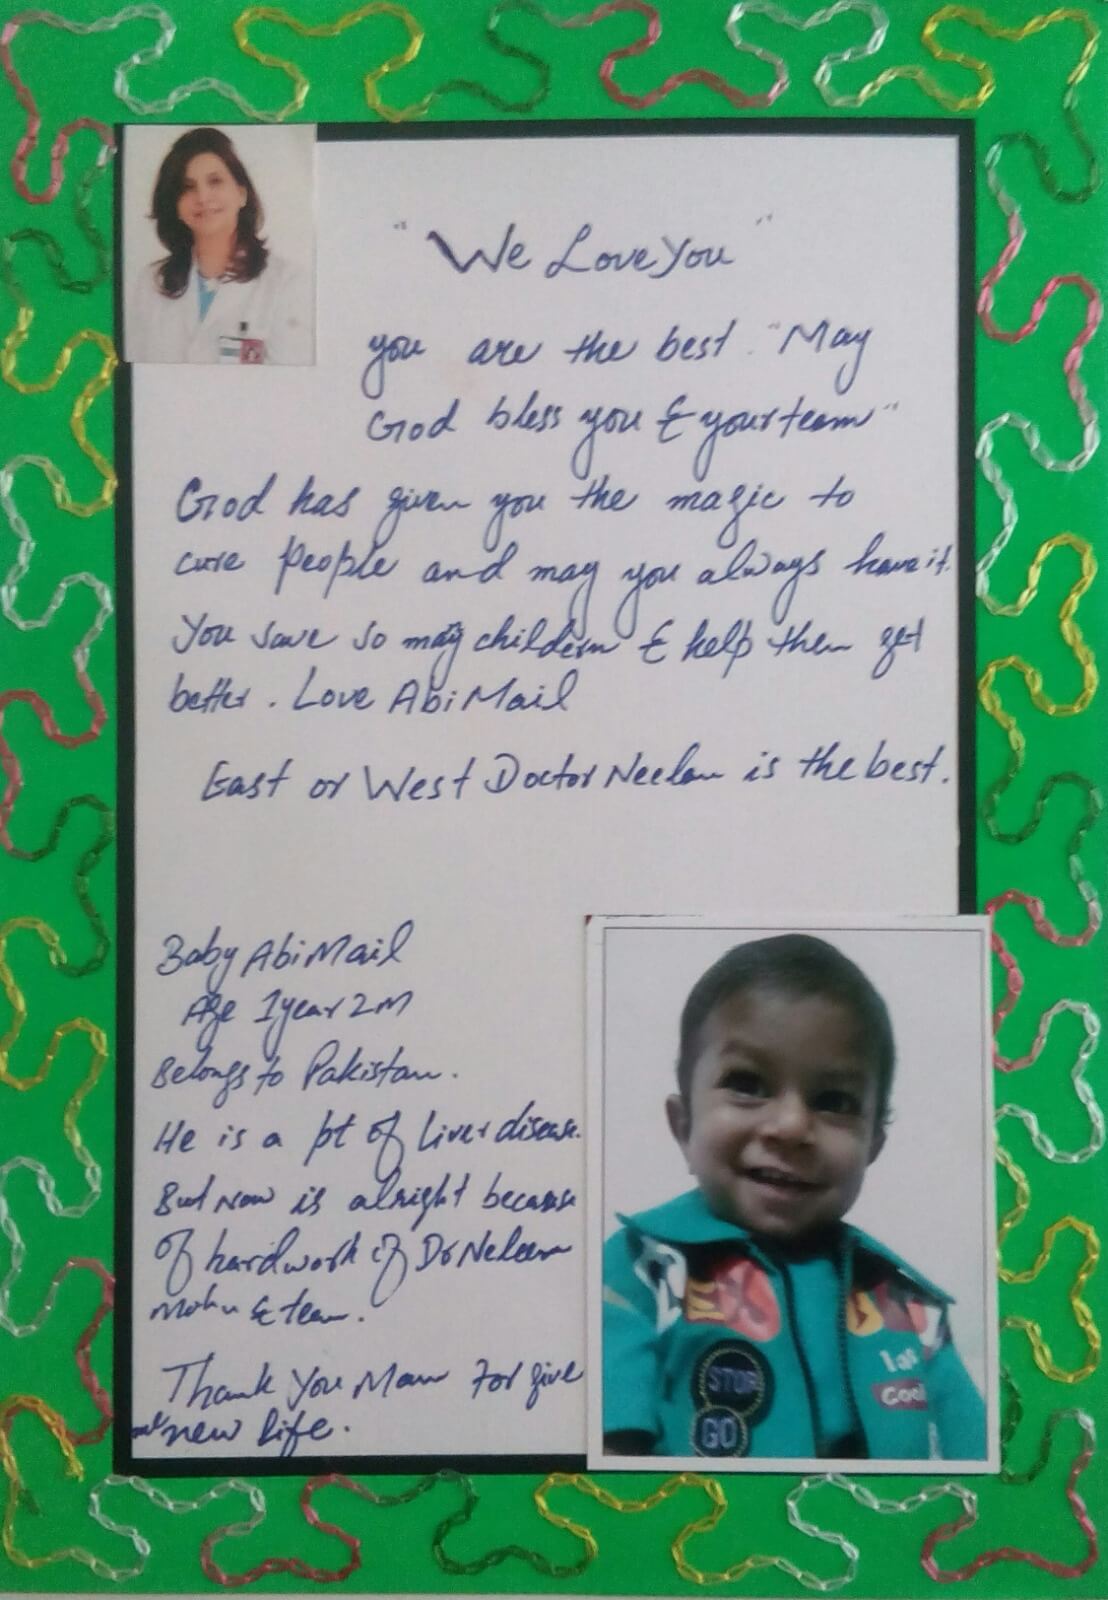 "We Love You"
you are the best. "May
God bless you & your team"
God has given you the magic to
cure people and may you always have it.
You save so many childern & help them get
better. Love AbiMail
East or West Doctor Neelam is the best.
Baby AbiMail
Age 1 year 2 M
Belongs to Pakistan.
He is a pt of Liver disease.
But now is alright because
of hardwork of Dr Neleem
Mohn & team.
Thank You Mam For give
me new life.
STOP
GO
Cool